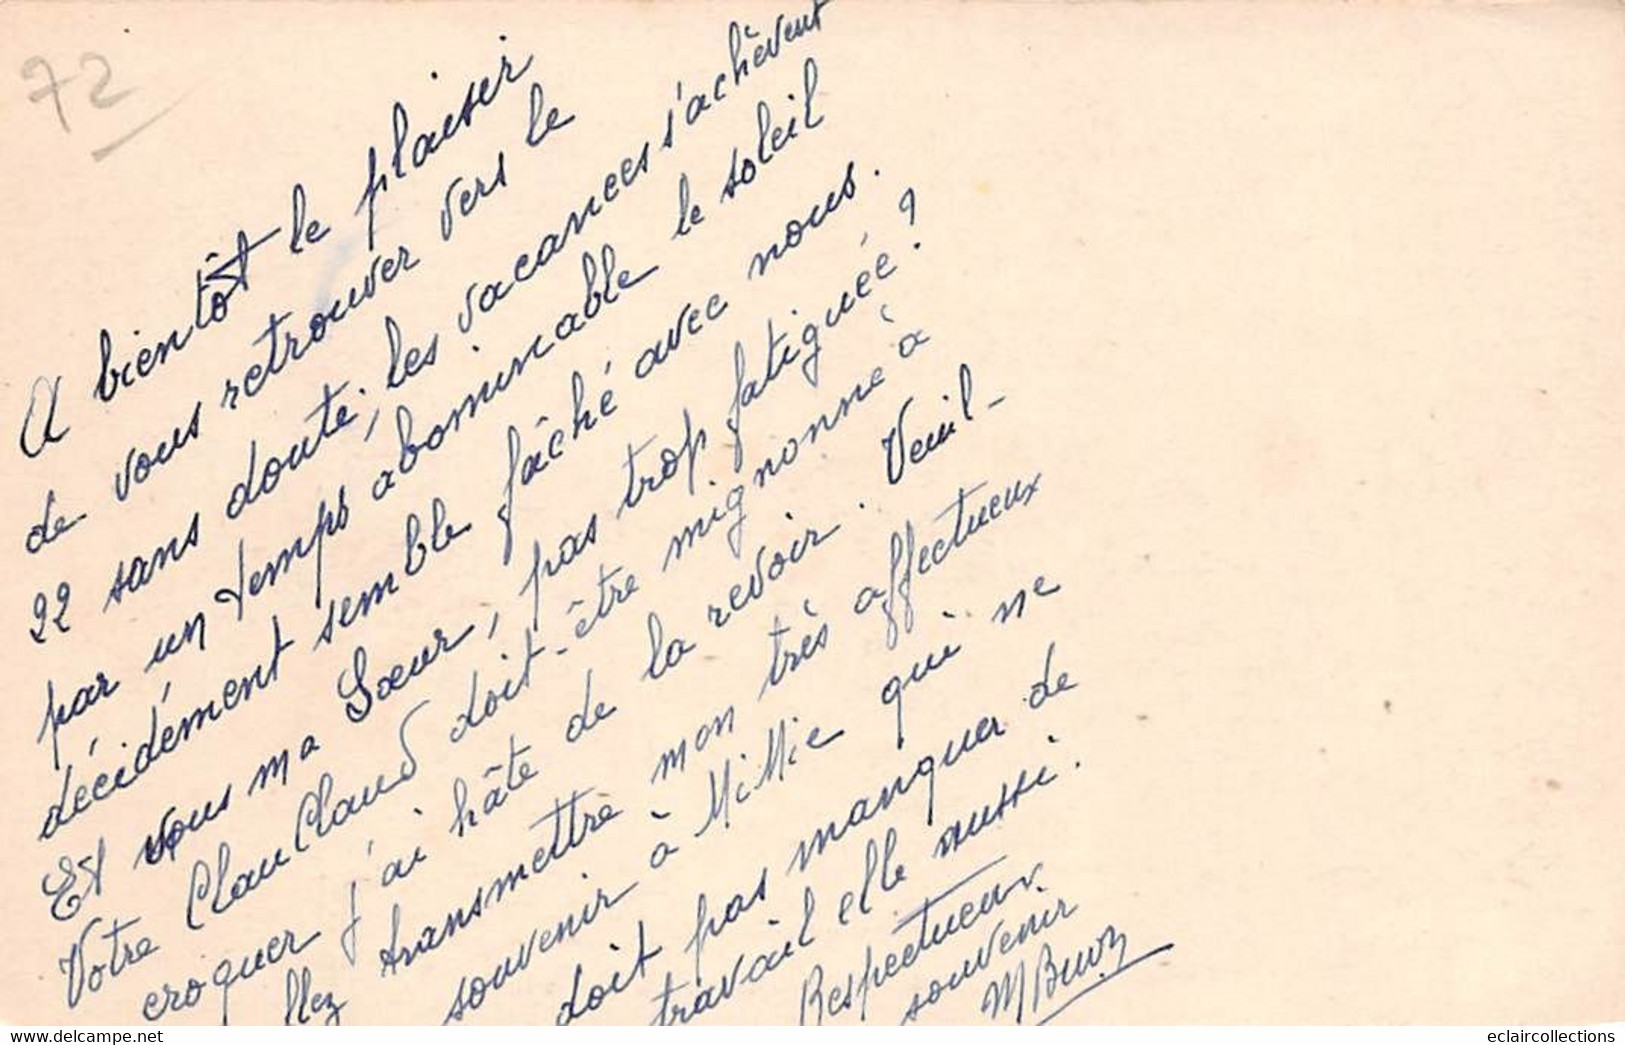 72
A bientôt le plaisir
de vous retrouver vers le
22 sans doute, les vacances s'achèvent
par un temps abominable le soleil
décidément semble fâché avec nous.
Et vous ma Sœur, pas trop fatiguée ?
Votre ClauClaud doit-être mignonne à
croquer j'ai hâte de la revoir. Veuil-
llez transmettre mon très affectueux
souvenir à MiMie qui ne
doit pas manquer de
travail elle aussi.
Respectueux
souvenir
eclaircollections